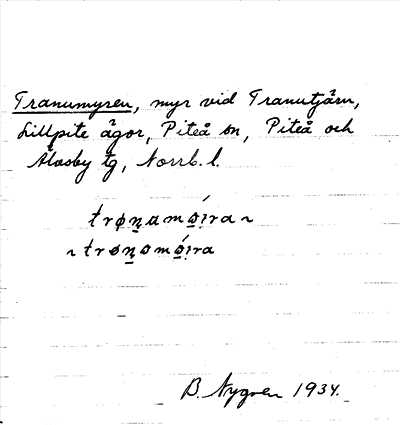 Tranumyren, myr vid Tranutjärn,
Lillpite ägor, Piteå sn, Piteå och
Älvsby tg, Norrb. l.
trønamo̱íra ~
~ trønomo̱íra
B. Nygren 1934.